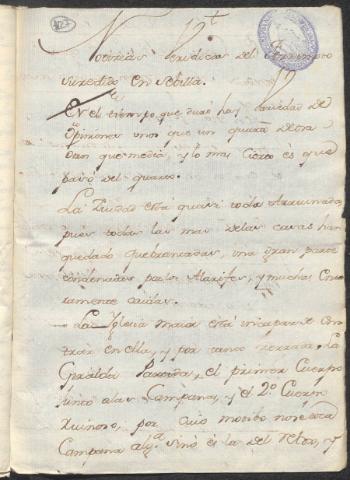 Noticias veridicas del terremoto
suzedido en Sebilla.
En el tiempo que duró hay variedad de
opiniones unos que un quarto de ora
otros que media, y lo mas cierto es que
pasó del quarto.
La Ciudad está quasi toda Arruinada,
pues todas las mas de las casas han
quedado quebrantadas, una gran parte
condenadas por los Alarifes, y muchas
caidas.
La Iglesia maior está incapaz de
en ella, y por tanto zerrada. La
Giralda Partida, el primer Cuerpo
junto a las Campanas, y el 2º Cuerpo
por cuio motibo no se toca
Campana alg.ª sino es la del Relox, y